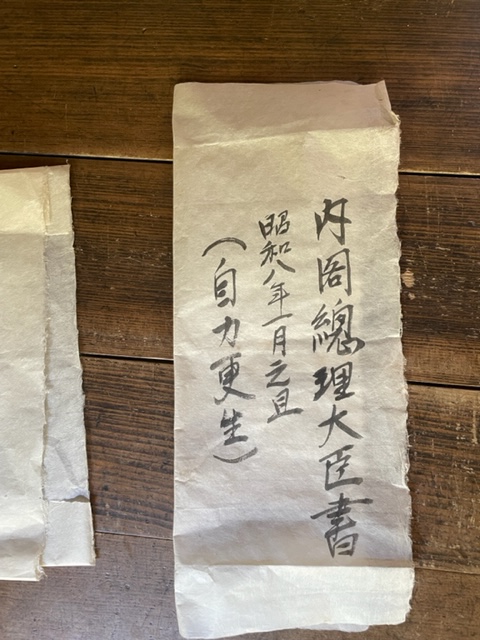 内閣總理大臣書
昭和八年一月元旦
(自力更生)